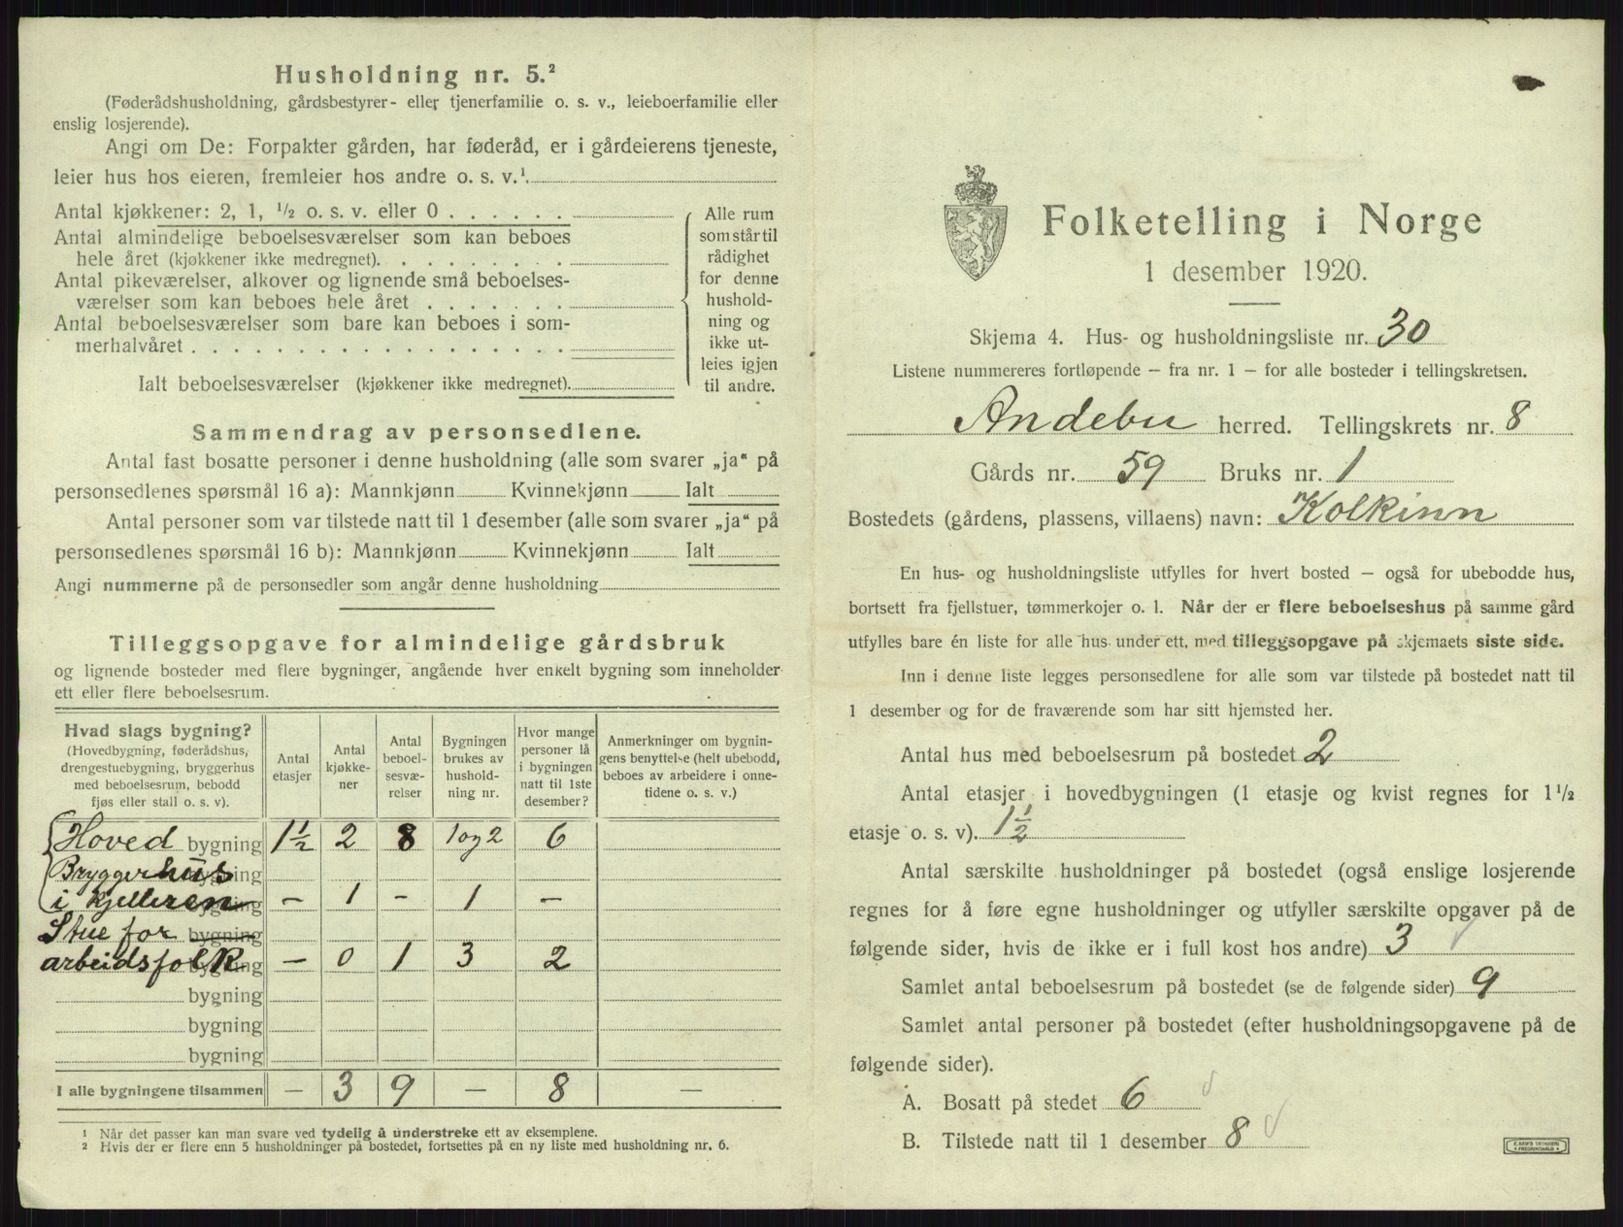 Husholdning nr. 5.²
(Føderådshusholdning, gårdsbestyrer- eller tjenerfamilie o. s. v., leieboerfamilie eller
enslig losjerende).
Angi om De: Forpakter gården, har føderåd, er i gårdeierens tjeneste,
leier hus hos eieren, fremleier hos andre o. s. v.¹
Antal kjøkkener: 2, 1, ½ o. s. v. eller 0 . . . . . .
Antal almindelige beboelsesværelser som kan beboes
hele året (kjøkkener ikke medregnet). . . . . . . . .
Antal pikeværelser, alkover og lignende små beboelses-
værelser som kan beboes hele året . . . . . . .
Antal beboelsesværelser som bare kan beboes i som-
merhalvåret . . . . . . . . . . . . . . . . . .
Ialt beboelsesværelser (kjøkkener ikke medregnet).
Alle rum
som står til
rådighet
for denne
hushold-
ning og
ikke ut-
leies igjen
til andre.
Sammendrag av personsedlene.
Antal fast bosatte personer i denne husholdning (alle som svarer „ja“ på
personsedlenes spørsmål 16 a): Mannkjønn Kvinnekjønn Ialt
Antal personer som var tilstede natt til 1 desember (alle som svarer „ja“ på
personsedlenes spørsmål 16 b): Mannkjønn Kvinnekjønn Ialt
Angi nummerne på de personsedler som angår denne husholdning
Tilleggsopgave for almindelige gårdsbruk
og lignende bosteder med flere bygninger, angående hver enkelt bygning som inneholder
ett eller flere beboelsesrum.
Hvad slags bygning?
(Hovedbygning, føderådshus,
drengestuebygning, bryggerhus
med beboelsesrum, bebodd
fjøs eller stall o. s. v).
Antal
etasjer
Antal
kjøkke-
ner
Antal
beboel-
sesvæ-
relser
Bygningen
brukes av
hushold-
ning nr.
Hvor mange
personer lå
i bygningen
natt til 1ste
desember?
Anmerkninger om bygnin-
gens benyttelse (helt ubebodd,
beboes av arbeidere i onne-
tidene o. s. v.)
Hoved bygning 1½ 2 8 1 og 2 6
Bryggerhus bygning
i kjelleren bygning – 1 – 1 –
Stue for bygning
arbeidsfolk bygning – 0 1 3 2
bygning
bygning
bygning
I alle bygningene tilsammen – 3 9 – 8 –
¹ Når det passer kan man svare ved tydelig å understreke ett av eksemplene.
² Hvis der er flere enn 5 husholdninger på bostedet, fortsettes på en ny liste med husholdning nr. 6.
Folketelling i Norge
1 desember 1920.
Skjema 4. Hus- og husholdningsliste nr. 30
Listene nummereres fortløpende – fra nr. 1 – for alle bosteder i tellingskretsen.
Andebu herred. Tellingskrets nr. 8
Gårds nr. 59 Bruks nr. 1
Bostedets (gårdens, plassens, villaens) navn: Kolkinn
En hus- og husholdningsliste utfylles for hvert bosted – også for ubebodde hus,
bortsett fra fjellstuer, tømmerkojer o. l. Når der er flere beboelseshus på samme gård
utfylles bare én liste for alle hus under ett, med tilleggsopgave på skjemaets siste side.
Inn i denne liste legges personsedlene for alle som var tilstede på bostedet natt til
1 desember og for de fraværende som har sitt hjemsted her.
Antal hus med beboelsesrum på bostedet 2
Antal etasjer i hovedbygningen (1 etasje og kvist regnes for 1½
etasje o. s. v). 1½
Antal særskilte husholdninger på bostedet (også enslige losjerende
regnes for å føre egne husholdninger og utfyller særskilte opgaver på de
følgende sider, hvis de ikke er i full kost hos andre) 3
Samlet antal beboelsesrum på bostedet (se de følgende sider) 9
Samlet antal personer på bostedet (efter husholdningsopgavene på de
følgende sider).
A. Bosatt på stedet 6
B. Tilstede natt til 1 desember 8